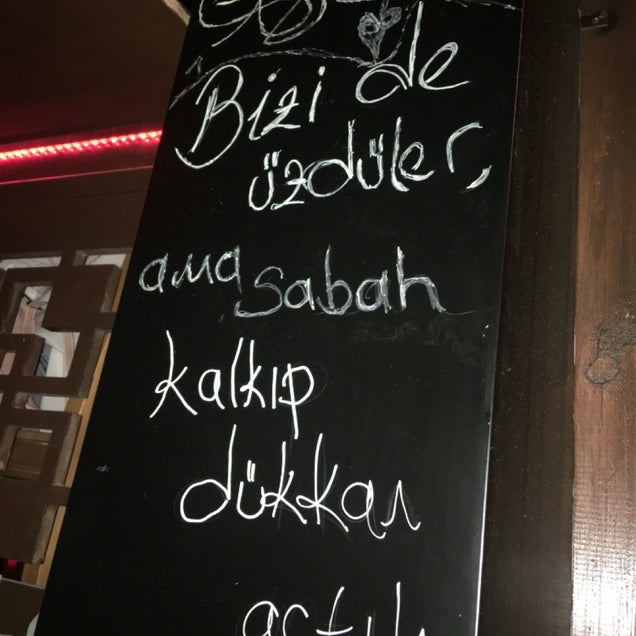 Bizi de
üzdüler,
ama sabah
kalkıp
dükkan